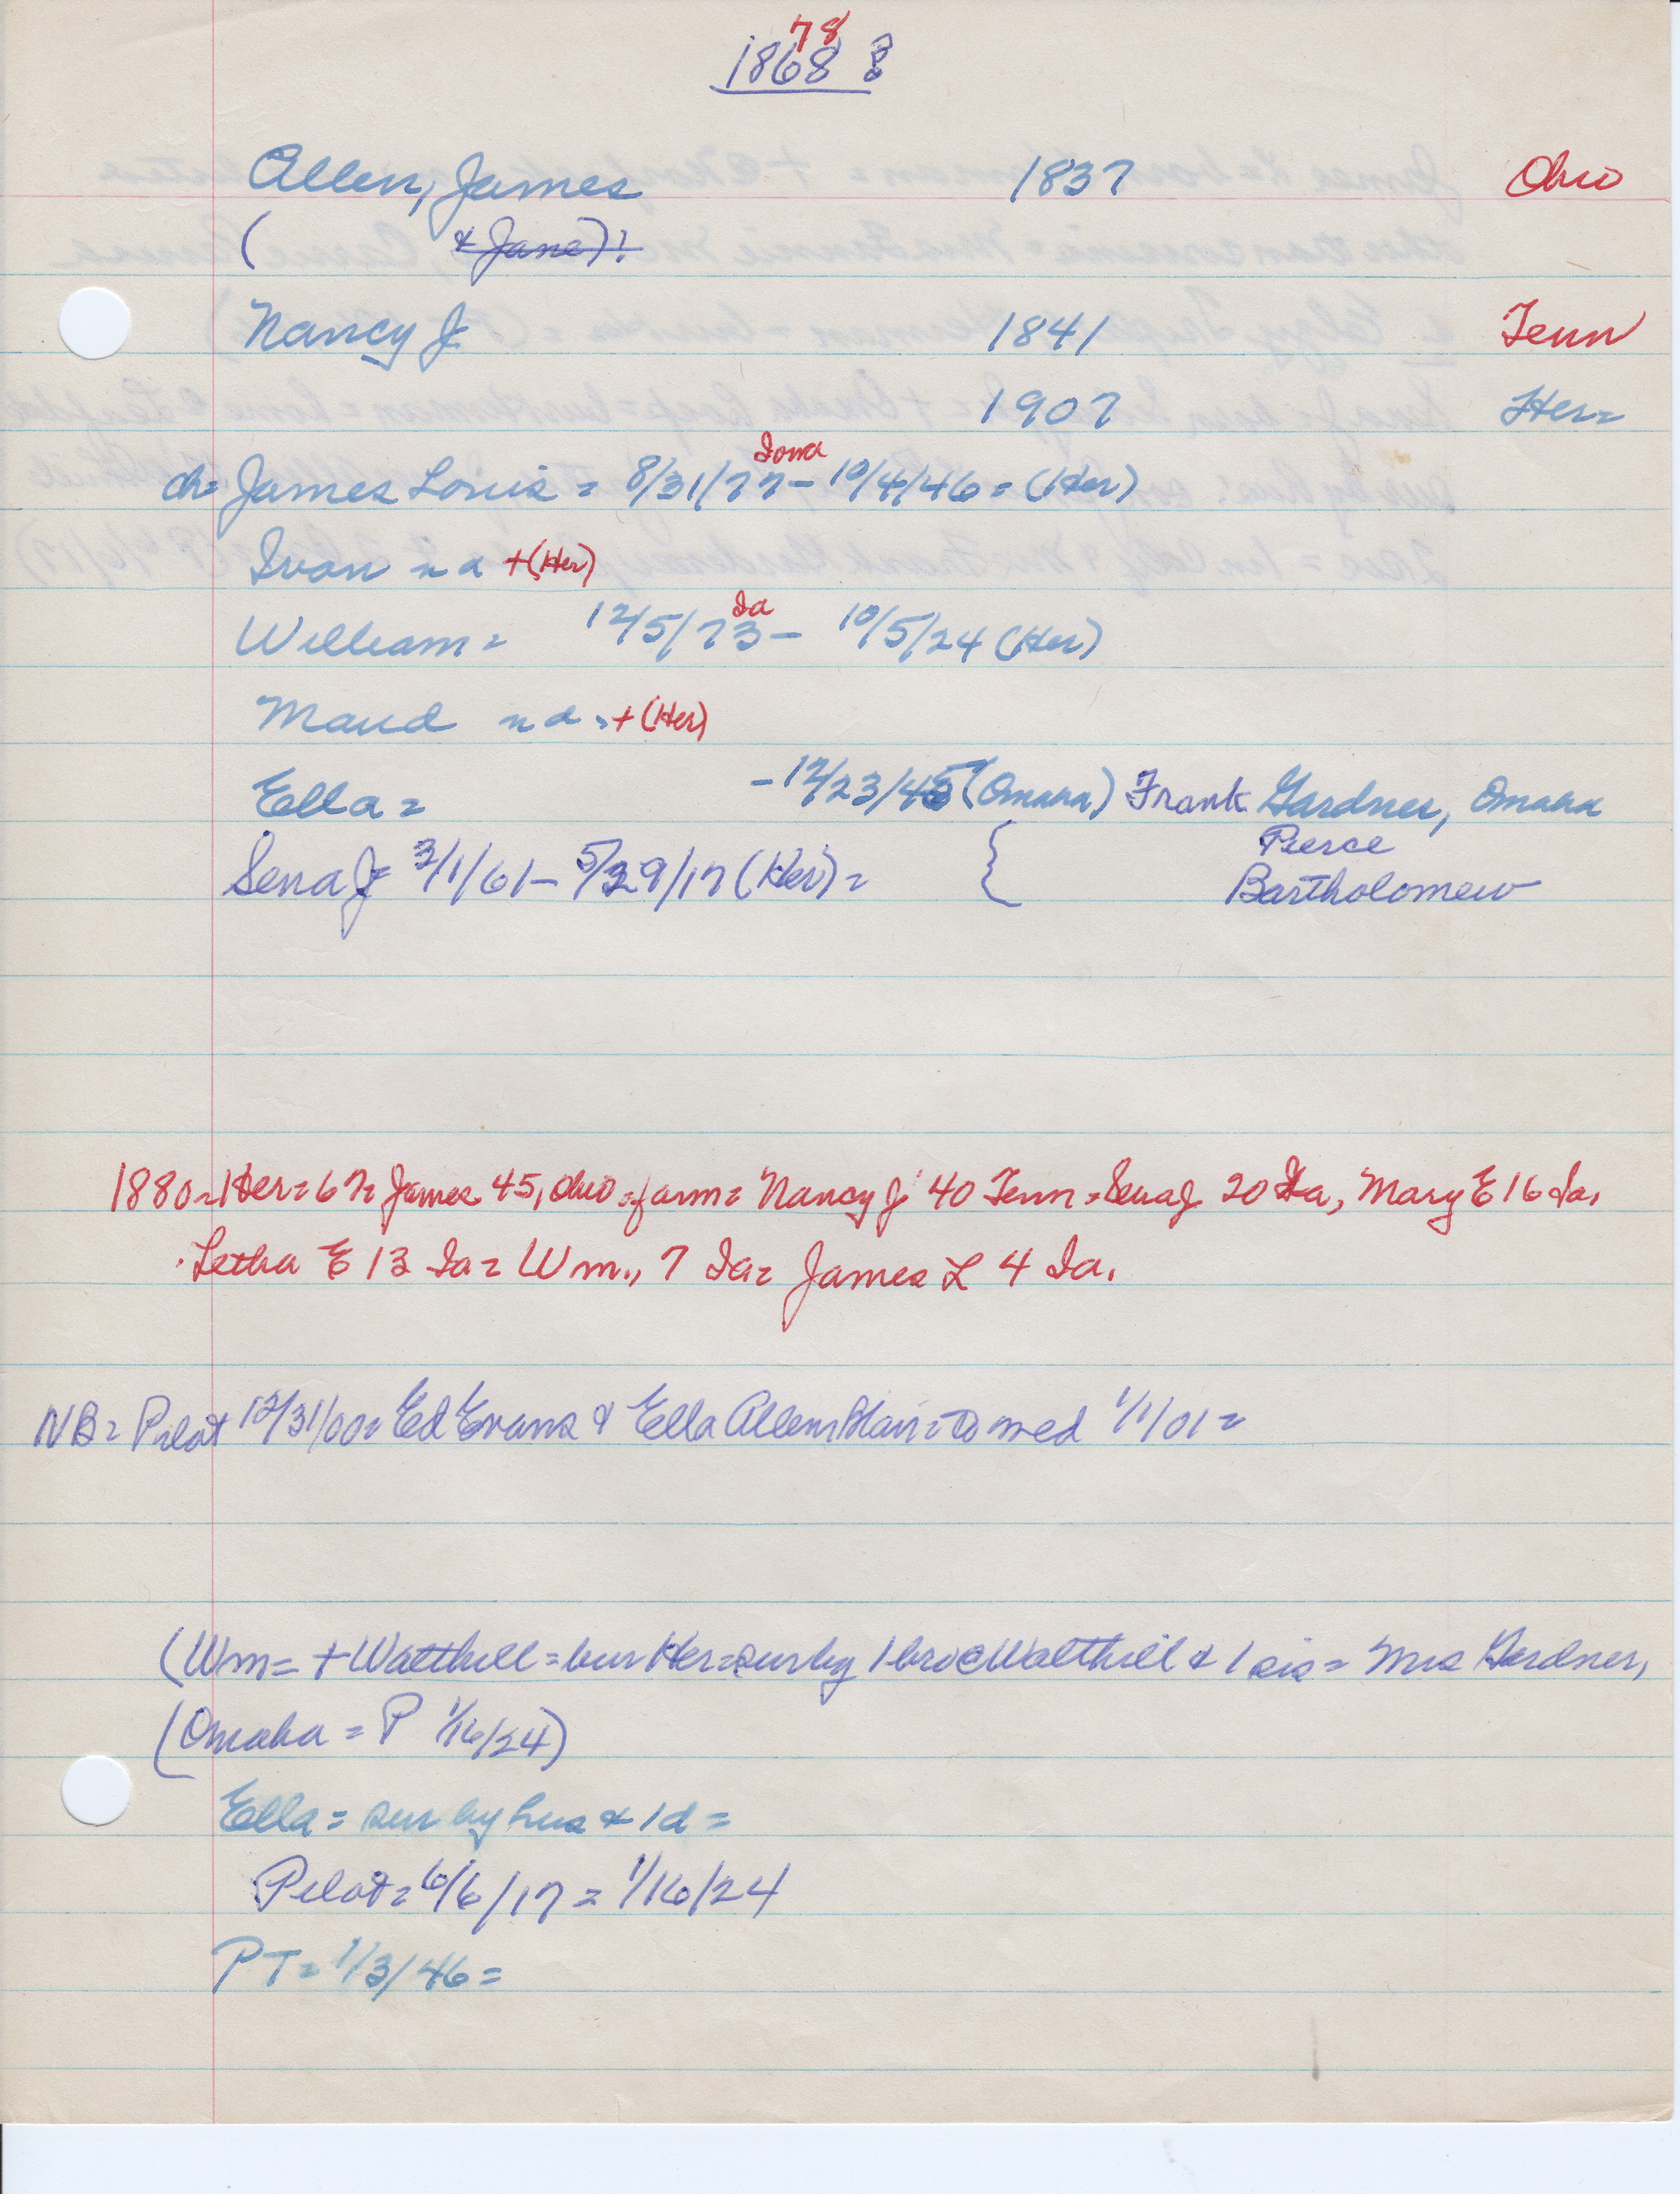 78
1868 ?
Allen, James 1837 Ohio
( & Jane)!
Nancy J 1841 Tenn
1907 Her=
Iowa
ch= James Louis = 8/31/77 - 10/4/46 = (Her)
Ivan n d +(Her)
Ia
William = 12/5/73 - 10/5/24 (Her)
Maud n d . +(Her)
Ella = - 12/23/45 (Omaha) Frank Gardner, Omaha
Pierce
Sena J= 3/1/61 - 5/29/17 (Her) = { Bartholomew
1880 = Her = 67 = James 45, Ohio = farm = Nancy J 40 Tenn = Sena J 20 Ia, Mary E 16 Ia.
Letha E 13 Ia = Wm., 7 Ia = James L 4 Ia.
NB = Pilot 12/31/00 = Ed Evans & Ella Allen Blair = to wed 1/1/01 =
(Wm = + Walthill = bur Her = sur by 1 bro @ Walthill & 1 sis = Mrs Gardner,
(Omaha = P 1/16/24)
Ella = sur by hus & 1 d =
Pilot = 6/6/17 = 1/16/24
PT = 1/3/46 =